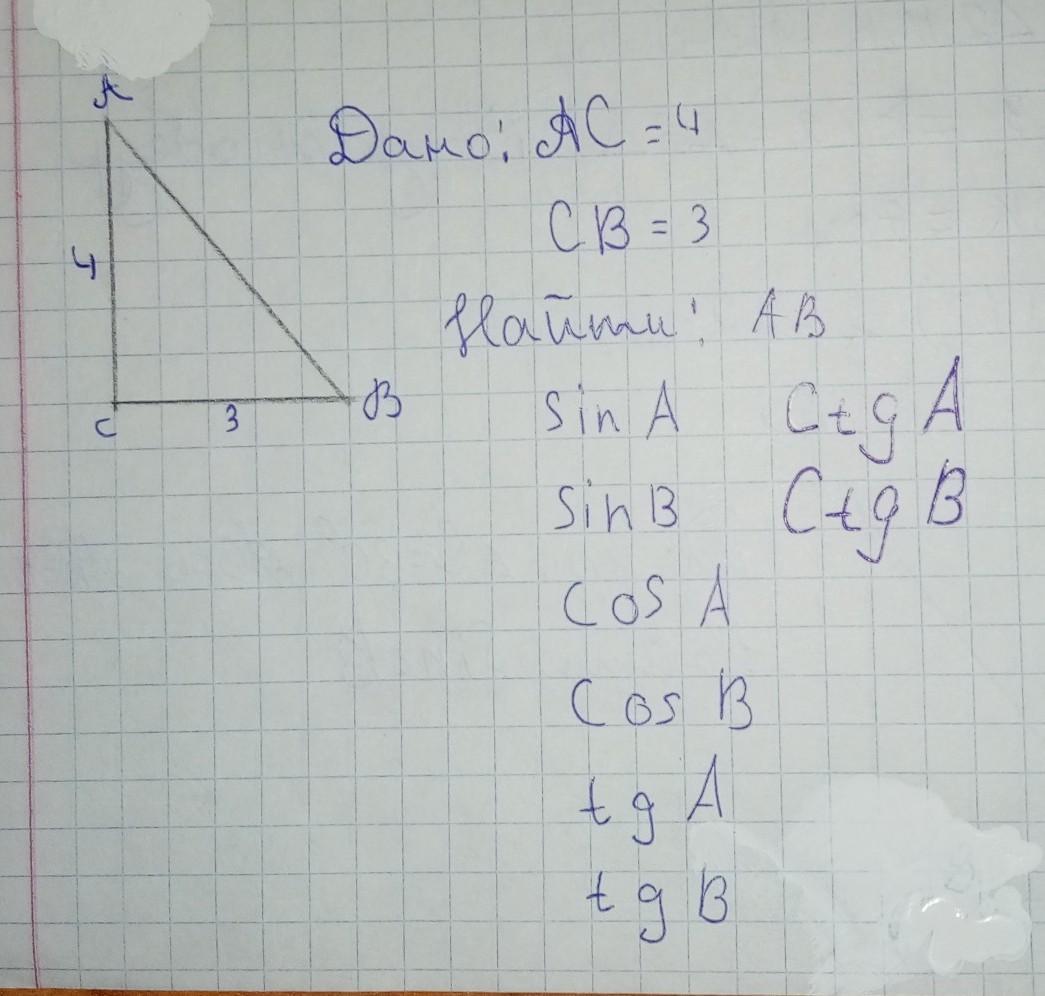 A
4
C
3
B
Дано: AC = 4
CB = 3
Найти: AB
Sin A Ctg A
Sin B Ctg B
Cos A
Cos B
tg A
tg B